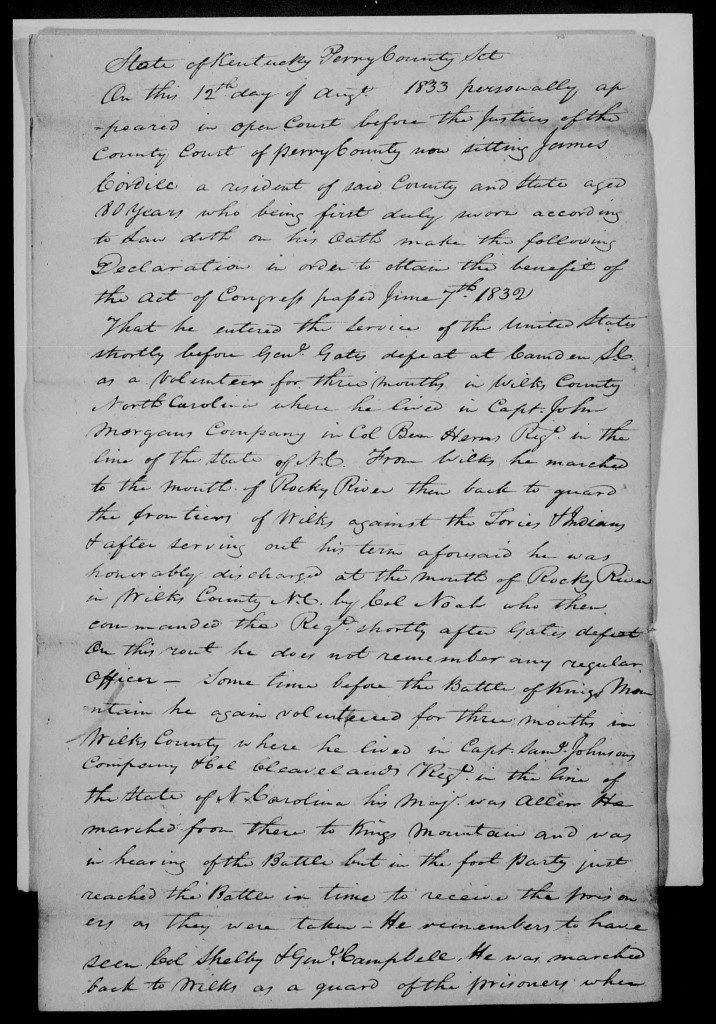 State of Kentucky Perry County Sct
On this 12th day of Augt. 1833 personally ap
-peared in open Court before the Justices of the
County Court of Perry County now sitting James
Cordill a resident of said County and State aged
80 Years who being first duly sworn according
to Law doth on his Oath make the following
Declaration in order to obtain the benefit of
the Act of Congress passed June 7th. 1832
That he entered the service of the United States
shortly before Genl. Gates defeat at Camden S.C.
as a volunteer for three months in Wilks County
North Carolina where he lived in Capt. John
Morgans Company in Col Ben Herns Regt. in the
line of the State of N.C. From Wilks he marched
to the mouth of Rocky River then back to guard
the frontiers of Wilks against the Tories & Indians
& after serving out his term aforesaid he was
honorably discharged at the mouth of Rocky River
in Wilks County N.C. by Col Noah who then
commanded the Regt. shortly after Gates defeat
On this rout he does not remember any regular
officer — Some time before the Battle of Kings Mou
-ntain he again volunteered for three months in
Wilks County where he lived in Capt. Saml. Johnsons
Company & Col Cleavelands Regt. in the line of
the State of N. Carolina his Maj. was Allen He
marched from there to Kings Mountain and was
in hearing of the Battle but in the foot Party just
reached the Battle in time to receive the prison
ers as they were taken — He remembers to have
seen Col Shelby & Genl. Campbell. He was marched
back to Wilks as a guard of the prisoners when